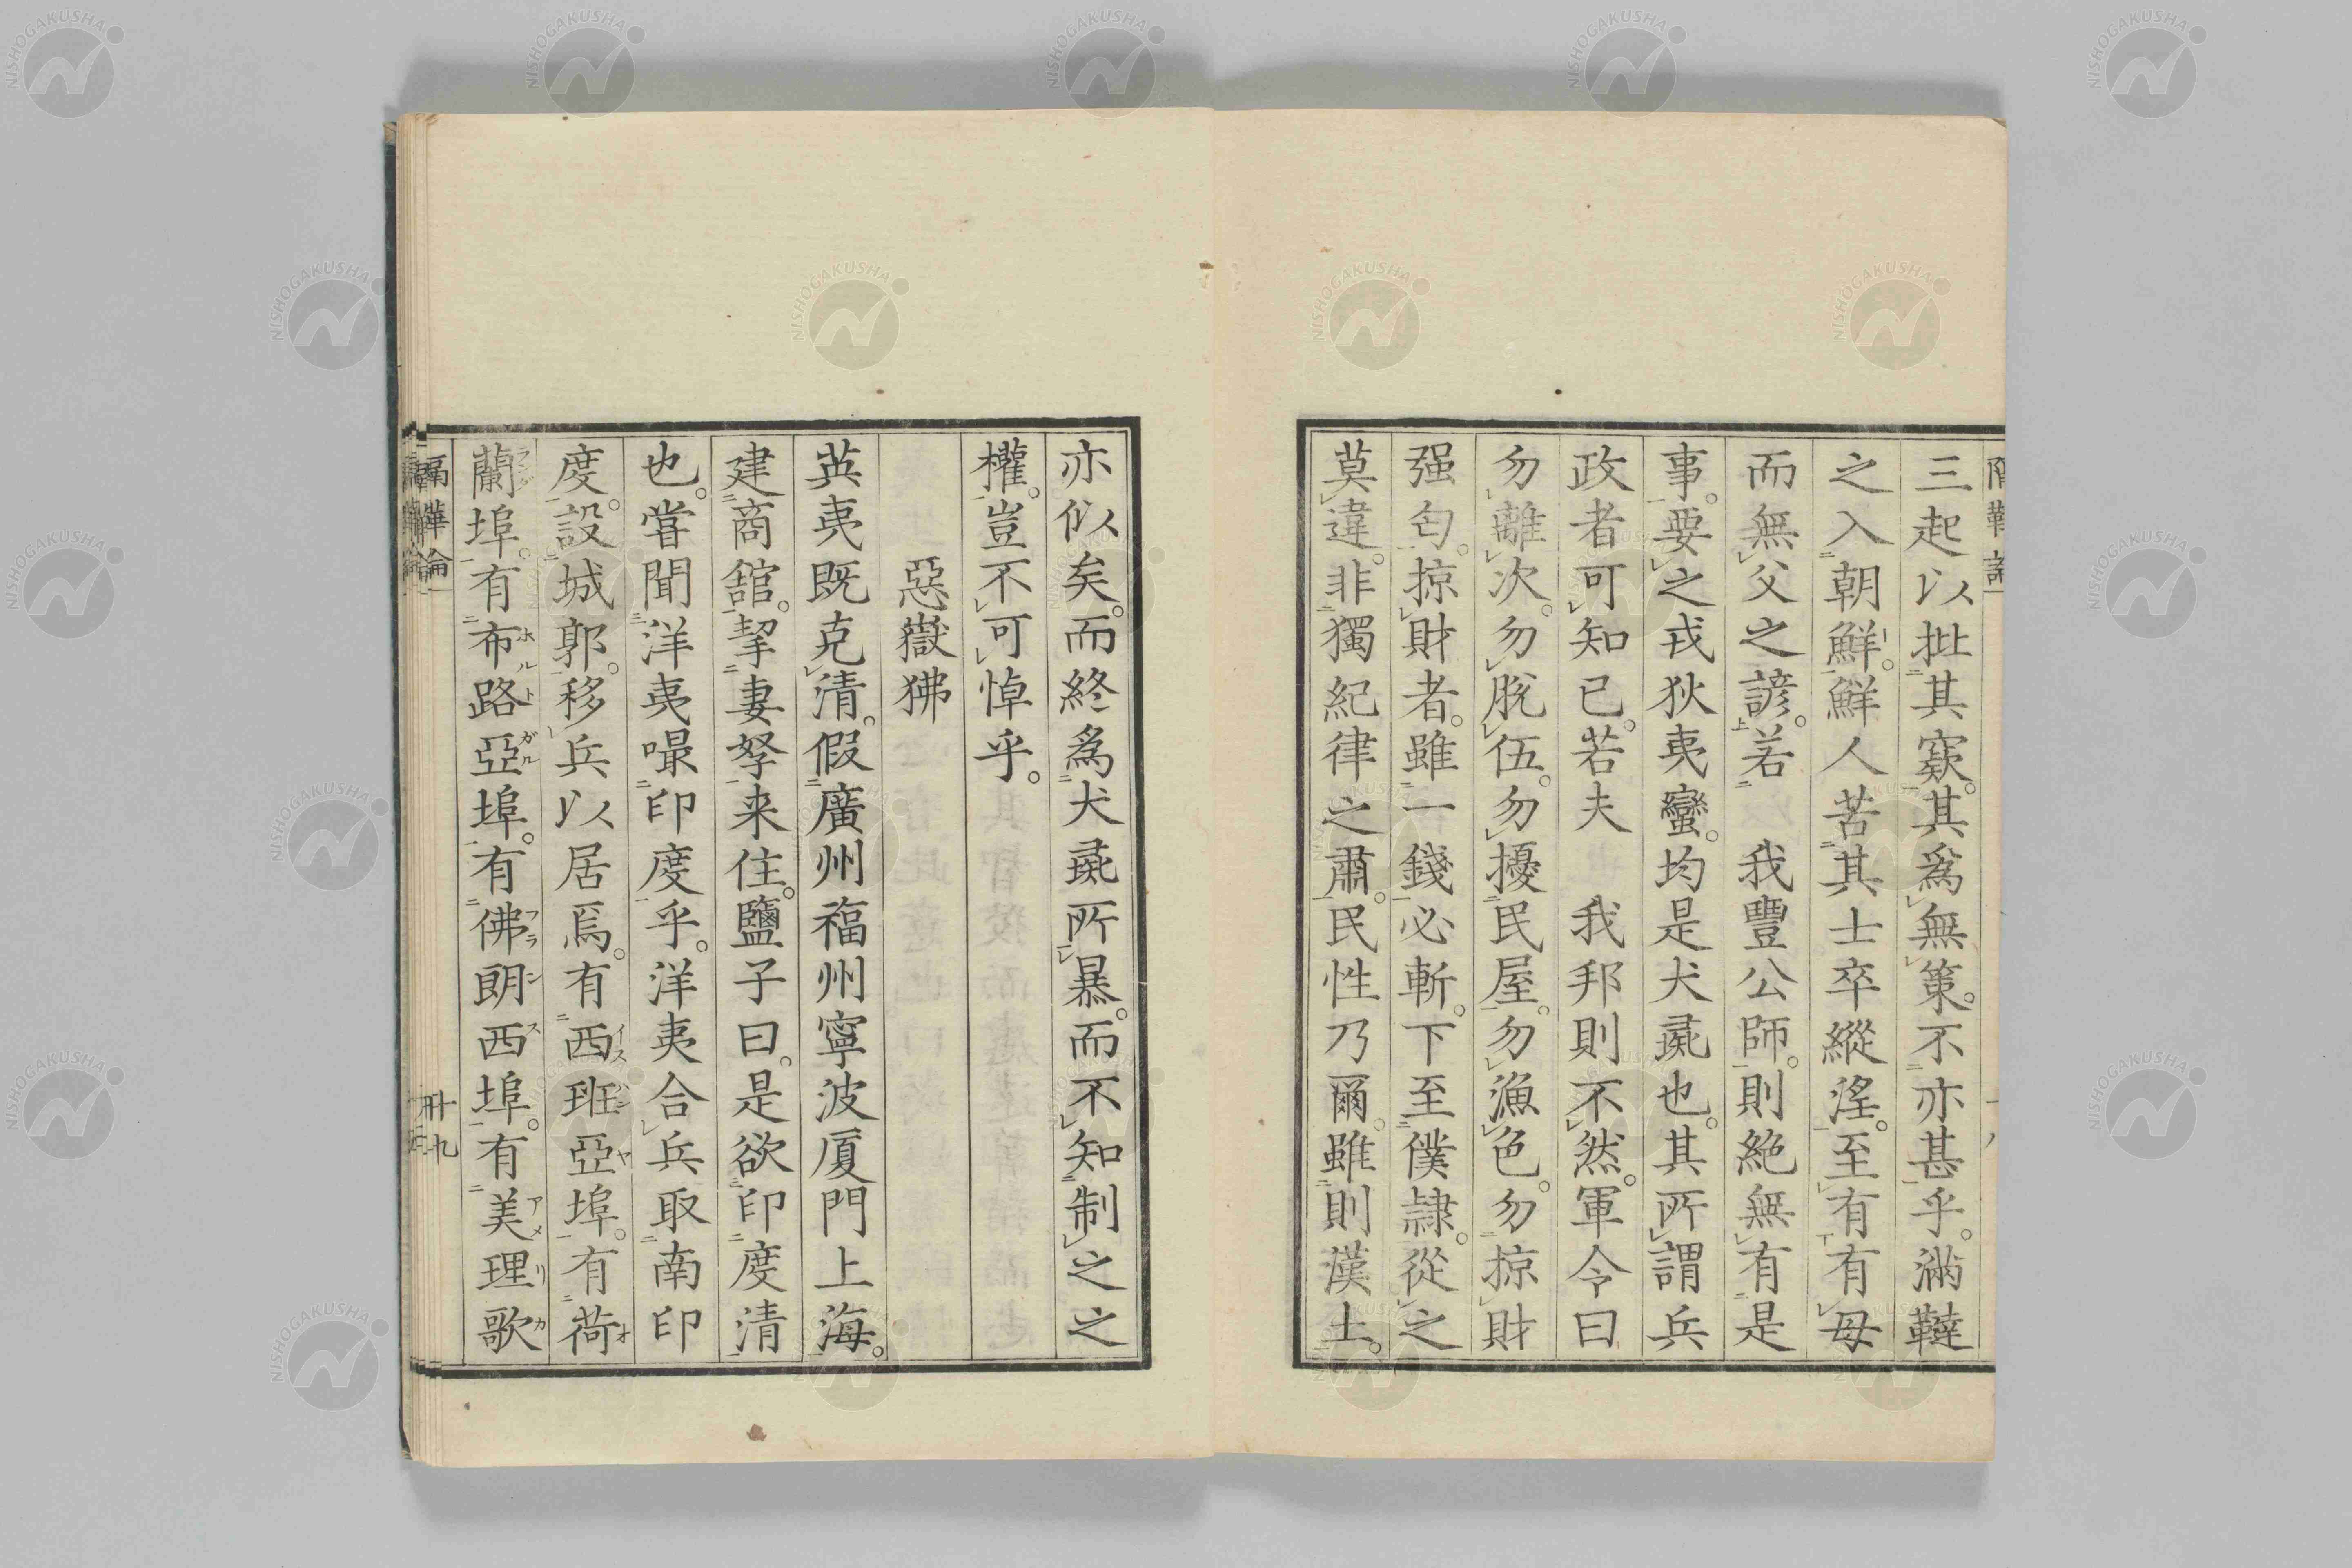 三起以扯其窽。其爲無策。不亦甚乎。滿韃
之入朝鮮。鮮人苦其士卒縱淫。至有有母
而無父之諺。若　我豐公師。則絶無有是
事。要之戎狄夷蠻。均是犬彘也。其所謂兵
政者可知已。若夫　我邦則不然。軍令曰
勿離次。勿脫伍。勿擾民屋。勿漁色。勿掠財
强匄。掠財者。雖一錢必斬。下至僕隷。從之
莫違。非獨紀律之肅。民性乃爾。雖則漢土。
亦似矣。而終爲犬彘所暴。而不知制之之
權。豈不可悼乎。
惡嶽狒
英夷既克清。假廣州福州寧波厦門上海。
建商舘。挈妻孥来住。鹽子曰。是欲印度清
也。嘗聞洋夷嘬印度乎。洋夷合兵取南印
度。設城郭。移兵以居焉。有西班亞埠。有荷
蘭埠。有布路亞埠。有佛朗西埠。有美理歌
隔華論
十九
NISHOGAKUSHA